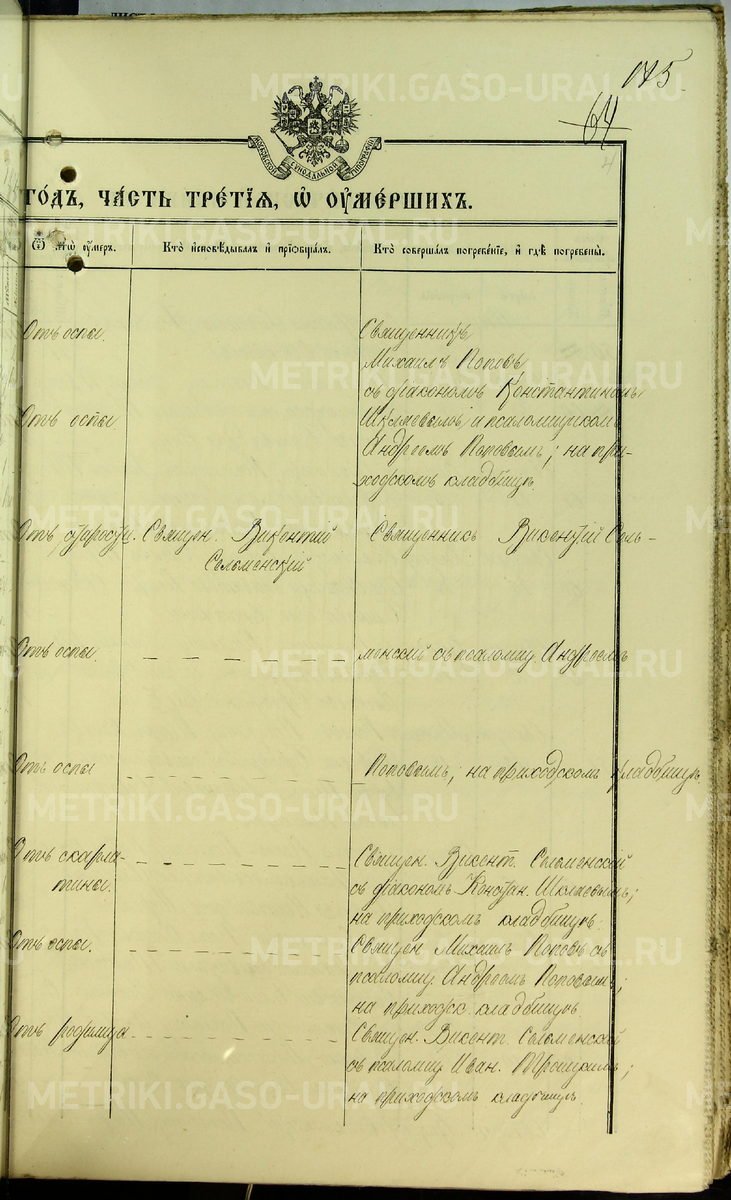 175
64
4
МОСКОВСКОЙ СѴНОДАЛЬНОЙ ТИПОГРАФІИ
ГО́ДЪ, ЧА́СТЬ ТРЕ́ТІЯ, Ѡ҆ ОУ҆МЕ́РШИХЪ.
Ѿ чегѡ̀ ᲂу҆́меръ.
Кто̀ и҆сповѣ́дывалъ и҆ прїѡбща́лъ.
Кто̀ соверша́лъ погребе́нїе, и҆ гдѣ̀ погребены̀.
Отъ оспы.
Священникъ
Михаилъ Поповъ
съ діакономъ Константиномъ
Отъ оспы.
и псаломщикомъ
Андреемъ Поповымъ; на при-
ходскомъ кладбищѣ.
Отъ старости.
Священ. Викентий
Сельменский
Священникъ Викентий Сель-
Отъ оспы.
менский съ псаломщ Андреемъ
Отъ оспы
Поповымъ; на приходскомъ кладбищѣ.
Отъ скарла-
тины.
Священ. Викент. Сельменский
съ діакономъ Констан.
на приходскомъ кладбищѣ.
Отъ оспы.
Священ Михаилъ Поповъ съ
псаломщ Андреемъ Поповымъ;
на приходск. кладбищѣ
Отъ родимца
Священ. Викент. Сельменский
съ псаломщ Иван.
на приходскомъ кладбищѣ.
METRIKI.GASO-URAL.RU